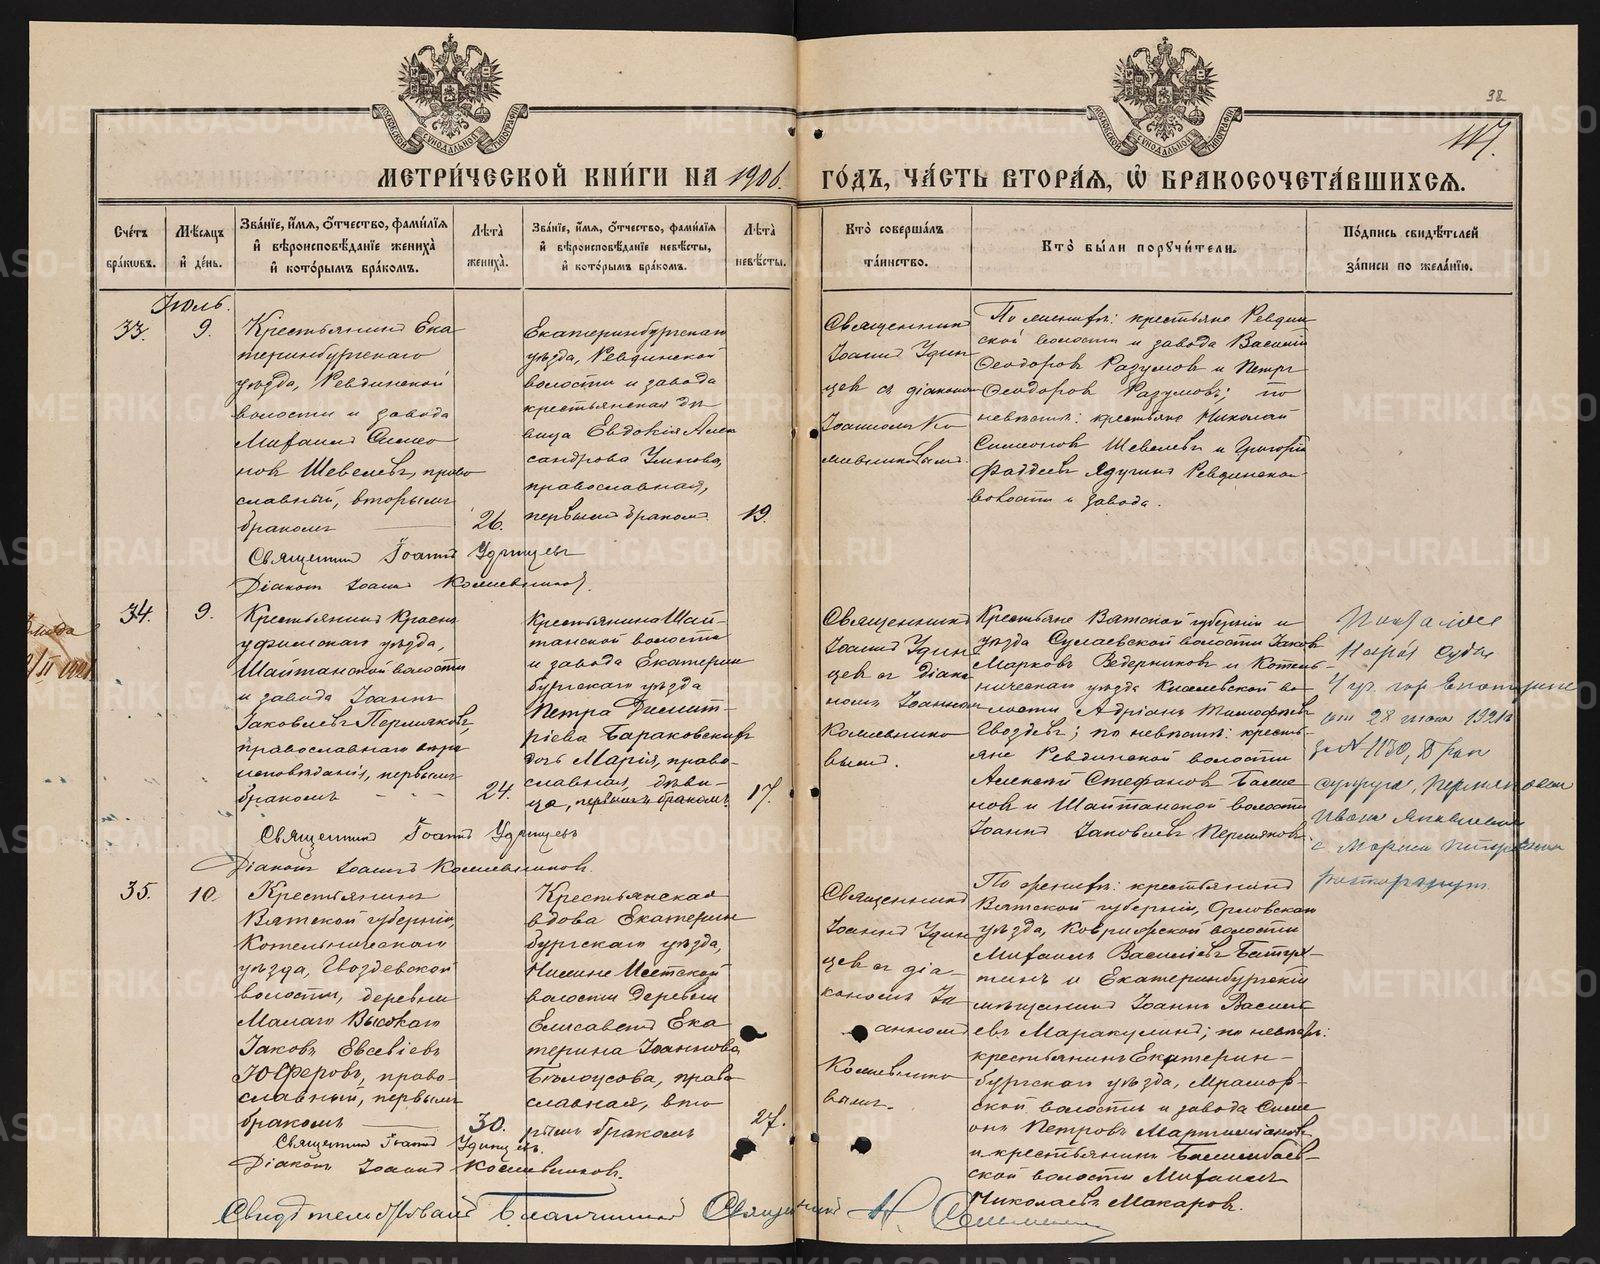 38
117.
МОСКОВСКОЙ СУНОДАЛЬНОЙ ТИПОГРАФІИ
МОСКОВСКОЙ СУНОДАЛЬНОЙ ТИПОГРАФІИ
МЕТРИ́ЧЕСКОЙ КНИ́ГИ НА 1906. ГО́ДЪ, ЧА́СТЬ ВТОРА́Я, Ѽ БРАКОСОЧЕТА́ВШИХСЯ.
Сче́тъ
бра́ковъ.
Мѣ́сяцъ
и де́нь.
Зва́нїе, и́мя, о́тчество, фами́лїя
и вѣроисповѣ́данїе жениха̀
и кото́рымъ бра́комъ.
Лѣта̀
жениха̀.
Зва́нїе, и́мя, о́тчество, фами́лїя
и вѣроисповѣ́данїе невѣ́сты,
и кото́рымъ бра́комъ.
Лѣта̀
невѣ́сты.
Кто̀ соверша́лъ
та́инство.
Кто̀ бы́ли поручи́тели.
По́дпись свидѣ́телей
за́писи по жела́нїю.
Іюль.
33.
9.
Крестьянинъ Ека
теринбургскаго
уѣзда, Ревдинской
волости и завода
Михаилъ Симео
новъ Шевелевъ, право
славный, вторымъ
бракомъ
26.
Екатеринбургскаго
уѣзда, Ревдинской
волости и завода
крестьянская дѣ
вица Евдокія Алек
сандрова Умнова,
православная,
первымъ бракомъ.
19.
Священникъ
Іоаннъ Удин
цевъ съ діакономъ
Іоанномъ Ко
жевниковымъ
По женихѣ: крестьяне Ревдин
ской волости и завода Василій
Ѳеодоровъ Разумовъ и Петръ
Ѳеодоровъ Разумовъ; по
невѣстѣ: крестьяне Николай
Симеоновъ Шевелевъ и Григорій
Фаддеевъ Ядугинъ Ревдинской
волости и завода.
Священникъ Іоаннъ Удинцевъ
Діаконъ Іоаннъ Кожевниковъ.
34.
9.
Крестьянинъ Красно
уфимскаго уѣзда,
Шайтанской волости
и завода Іоаннъ
Іаковлевъ Пермяковъ,
православнаго вѣро
исповѣданія, первымъ
бракомъ
24.
Крестьянина Шай-
танской волости
и завода Екатерин
бургскаго уѣзда
Петра Димит-
ріева Бараковскихъ
дочь Марія, право-
славная, дѣви-
ца, первымъ бракомъ.
17.
Священникъ
Іоаннъ Удин
цевъ съ діако
номъ Іоанномъ
Кожевнико
вымъ.
Крестьяне Вятской губерніи и
уѣзда Сулаевской волости Іаковъ
Марковъ Ведерниковъ и Котель-
ническаго уѣзда Киселевской во-
лости Адріанъ Тимофѣевъ
Гвоздевъ; по невѣстѣ: крестья-
яне Ревдинской волости
Алексѣй Стефановъ Баже
новъ и Шайтанской волости
Іоаннъ Іаковлевъ Пермяковъ.
Нарсуда
4 уч. гор. Екатерин
от 28 1921 г.
за № 1130, брак
супруг. Пермяковых
Ивана Яковлевича
с Марией Петровной
расторгнут.
Священникъ Іоаннъ Удинцевъ
Діаконъ Іоаннъ Кожевниковъ.
35.
10.
Крестьянинъ
Вятской губерніи,
Котельническаго
уѣзда, Гвоздевской
волости, деревни
Малаго Высокаго
Іаковъ Евсевіевъ
Юферовъ, право-
славный, первымъ
бракомъ
30.
Крестьянская
вдова Екатерин
бургскаго уѣзда,
Нижне Исетской
волости деревни
Елисаветъ Ека
терина Іоаннова
Бѣлоусова, право
славная, вто
рымъ бракомъ
27.
Священникъ
Іоаннъ Удин
цевъ съ діа-
кономъ Іо
анномъ
Кожевнико
вымъ.
По женихѣ: крестьянинъ
Вятской губерніи, Орловскаго
уѣзда, Ковригской волости
Михаилъ Василіевъ
и Екатеринбургскій
мѣщанинъ Іоаннъ Василь
евъ Маракулинъ; по невѣстѣ:
крестьянинъ Екатерин-
бургскаго уѣзда, Мрамор-
ской волости и завода Симе
онъ Петровъ Мартиміановъ
и крестьянинъ
ской волости Михаилъ
Николаевъ Макаровъ.
Священникъ Іоаннъ Удинцевъ.
Діаконъ Іоаннъ Кожевниковъ.
Свидѣтельствовалъ Благочинный Священникъ